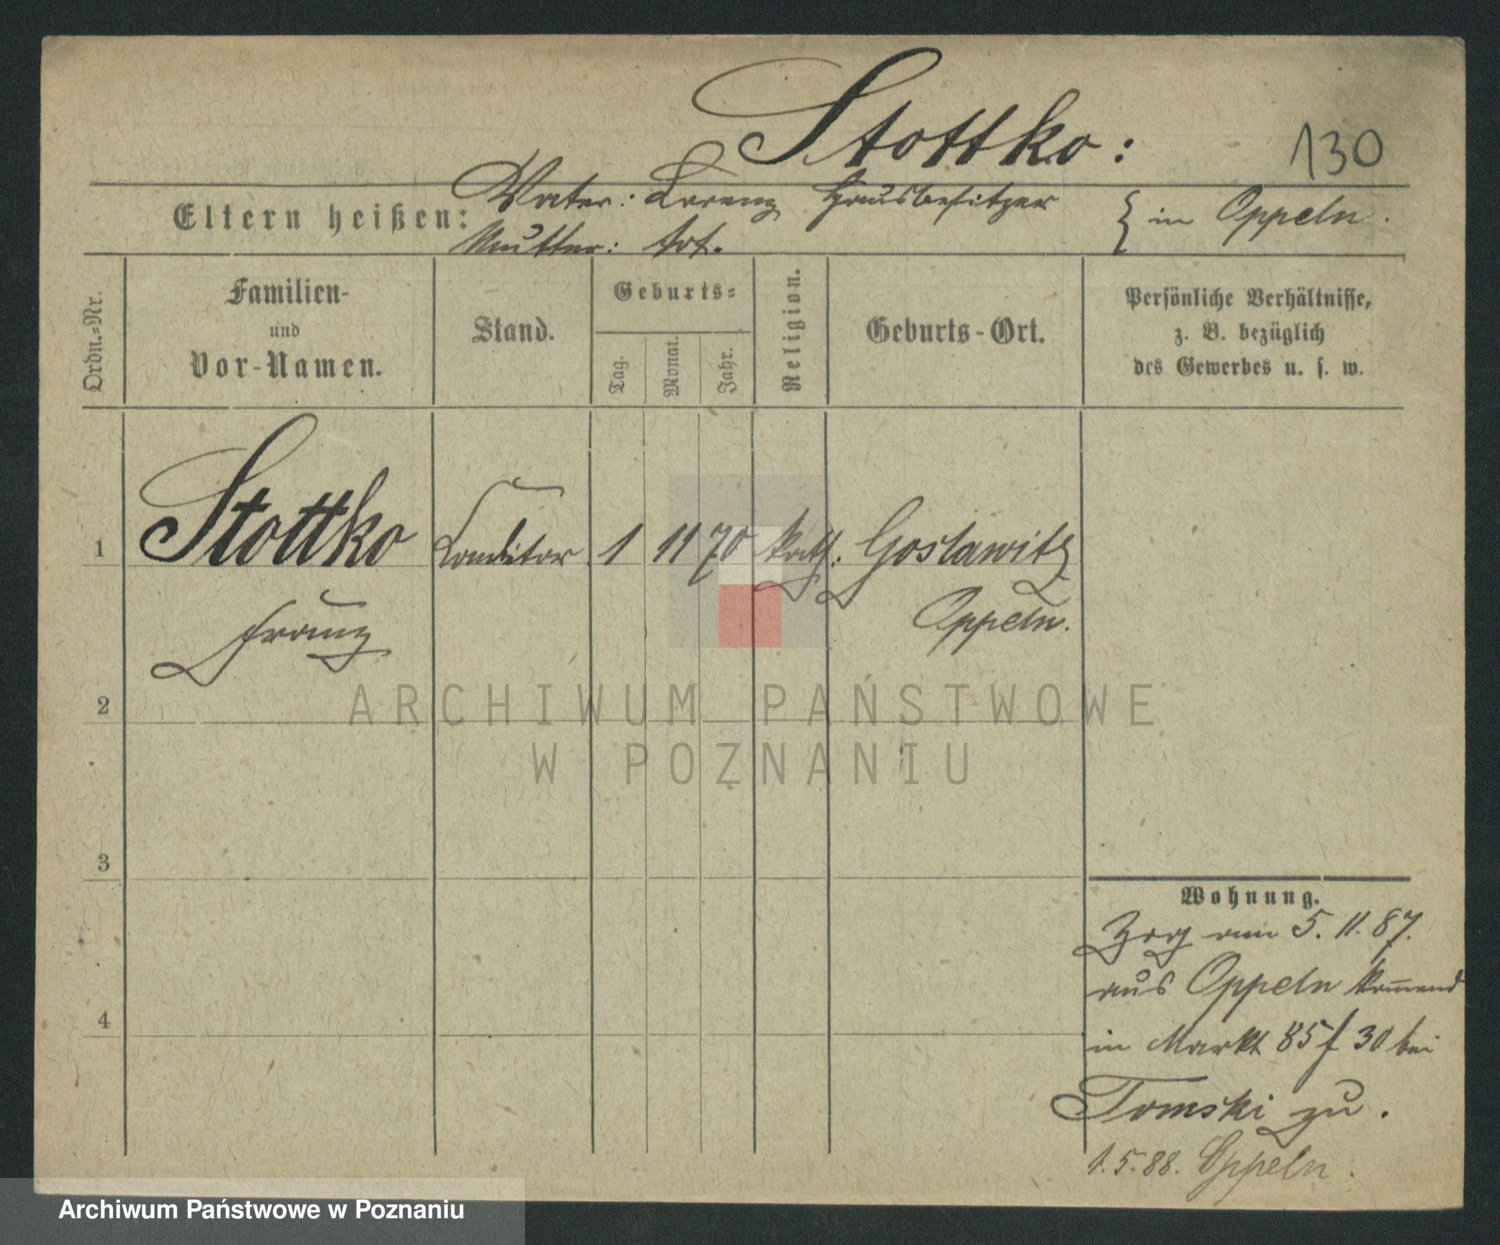 Stottko:
130
Eltern heißen:
Vater: Lorenz Hausbesitzer
Mutter: tot.
} in Oppeln.
Ordn.-Nr.
Familien-
und
Vor-Namen.
Stand.
Geburts-
Tag.
Monat.
Jahr.
Religion.
Geburts-Ort.
Persönliche Verhältnisse,
z. B. bezüglich
des Gewerbes u. s. w.
1 Stottko Conditor 1 11 70 kath. Goslawitz
Franz Oppeln.
2
3
4
Wohnung.
Zog am 5. 11. 87.
aus Oppeln kom̅end
in Markt 85 f 30 bei
Tomski zu.
1. 5. 88. Oppeln.
ARCHIWUM PAŃSTWOWE
W POZNANIU
Archiwum Państwowe w Poznaniu